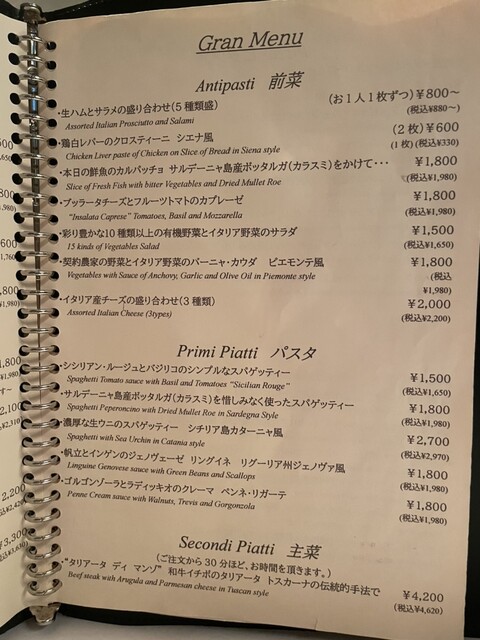 Gran Menu
Antipasti 前菜
・生ハムとサラメの盛り合わせ(5種類盛) (お1人1枚ずつ)¥800~
Assorted Italian Prosciutto and Salami (税込¥880~)
・鶏白レバーのクロスティーニ シエナ風 (2枚)¥600
Chicken Liver paste of Chicken on Slice of Bread in Siena style (1枚)(税込¥330)
・本日の鮮魚のカルパッチョ サルデーニャ島産ボッタルガ(カラスミ)をかけて・・・ ¥1,800
Slice of Fresh Fish with bitter Vegetables and Dried Mullet Roe (税込¥1,980)
・ブッラータチーズとフルーツトマトのカプレーゼ ¥1,800
"Insalata Caprese" Tomatoes, Basil and Mozzarella (税込¥1,980)
・彩り豊かな10種類以上の有機野菜とイタリア野菜のサラダ ¥1,500
15 kinds of Vegetables Salad (税込¥1,650)
・契約農家の野菜とイタリア野菜のバーニャ・カウダ ピエモンテ風 ¥1,800
Vegetables with Sauce of Anchovy, Garlic and Olive Oil in Piemonte style (税込
¥1,980)
・イタリア産チーズの盛り合わせ(3種類) ¥2,000
Assorted Italian Cheese (3types) (税込¥2,200)
Primi Piatti パスタ
・シシリアン・ルージュとバジリコのシンプルなスパゲッティー ¥1,500
Spaghetti Tomato sauce with Basil and Tomatoes "Sicilian Rouge" (税込¥1,650)
・サルデーニャ島産ボッタルガ(カラスミ)を惜しみなく使ったスパゲッティー ¥1,800
Spaghetti Peperoncino with Dried Mullet Roe in Sardegna Style (税込¥1,980)
・濃厚な生ウニのスパゲッティー シチリア島カターニャ風 ¥2,700
Spaghetti with Sea Urchin in Catania style (税込¥2,970)
・帆立とインゲンのジェノヴェーゼ リングイネ リグーリア州ジェノヴァ風 ¥1,800
Linguine Genovese sauce with Green Beans and Scallops (税込¥1,980)
・ゴルゴンゾーラとラディッキオのクレーマ ペンネ・リガーテ ¥1,800
Penne Cream sauce with Walnuts, Trevis and Gorgonzola (税込¥1,980)
Secondi Piatti 主菜
(ご注文から30分ほど、お時間を頂きます。)
・"タリアータ ディ マンゾ" 和牛イチボのタリアータ トスカーナの伝統的手法で ¥4,200
Beef steak with Arugula and Parmesan cheese in Tuscan style (税込¥4,620)